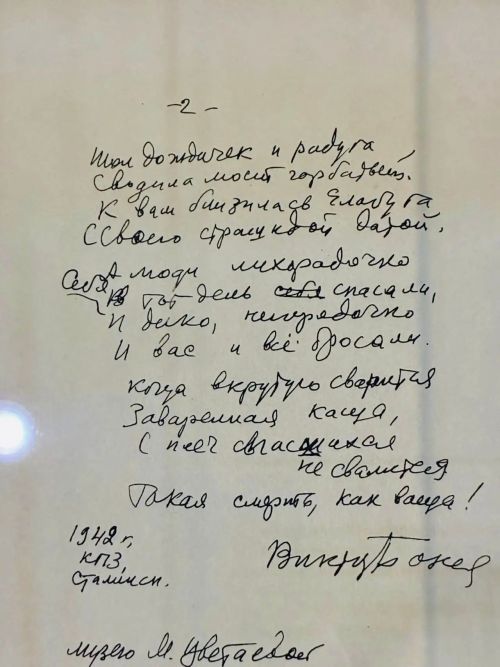 -2-
Шёл дождичек и радуга,
Сводила мост горбатый.
К вам близилась Елабуга
С своею страшной датой.
А люди лихорадочно
Себя В тот день себя спасали,
И дико, непорядочно
И вас и всё бросали.
Когда вкрутую сварится
Заваренная каша,
С плеч спасшихся
не свалится
Такая смерть, как ваша!
1942 г,
КПЗ,
Сталинск.
Виктор
музею М. Цветаевой